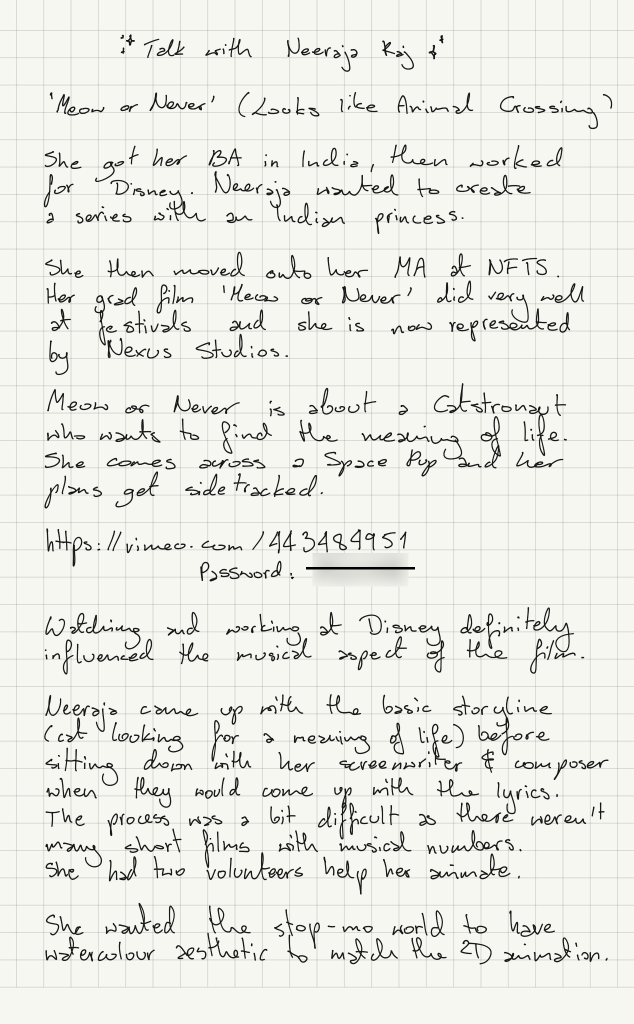 Talk with Neeraja Raj
'Meow or Never' (Looks like Animal Crossing)
She got her BA in India, then worked
for Disney. Neeraja wanted to create
a series with an Indian princess.
She then moved onto her MA at NFTS.
Her grad film 'Meow or Never' did very well
at festivals and she is now represented
by Nexus Studios.
Meow or Never is about a Catstronaut
who wants to find the meaning of life.
She comes across a Space Pup and her
plans get sidetracked.
https://vimeo.com/443484951
Password:
Watching and working at Disney definitely
influenced the musical aspect of the film.
Neeraja came up with the basic storyline
(cat looking for a meaning of life) before
sitting down with her screenwriter & composer
when they would come up with the lyrics.
The process was a bit difficult as there weren't
many short films with musical numbers.
She had two volunteers help her animate.
She wanted the stop-mo world to have
watercolour aesthetic to match the 2D animation.